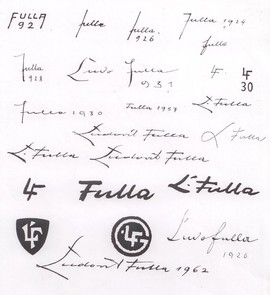 FULLA 92 fulla fulla 926 Fulla 1924
fulla
fulla 923 Ľudo fulla 93? LF LF 30
fulla 1930 Fulla 1957 Ľ. Fulla
Ľudovít Fulla Ľ Fulla
Ľ. Fulla Ľudovít Fulla
LF Fulla Ľ. Fulla
LF LF Ľudo fulla 1926
Ľudovít Fulla 1962